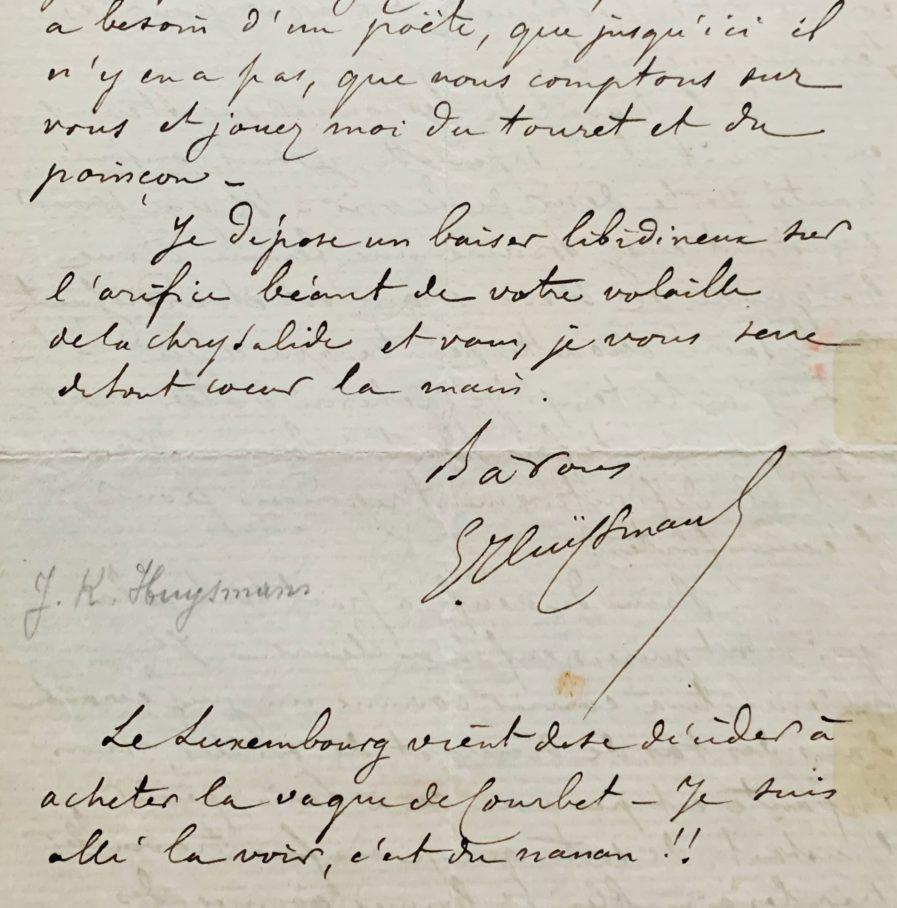 a besoin d'un poëte, que jusqu'ici il
n'y en a pas, que nous comptons sur
vous et jouez moi du touret et du
poinçon –
Je dépose un baiser libidineux sur
l'orifice béant de votre volaille
de la chrysalide et vous, je vous serre
de tout coeur la main.
Bà vous
J. K. Huysmans
Le Luxembourg vient de se décider à
acheter la vague de Courbet – Je suis
allé la voir, c'est du nanan !!